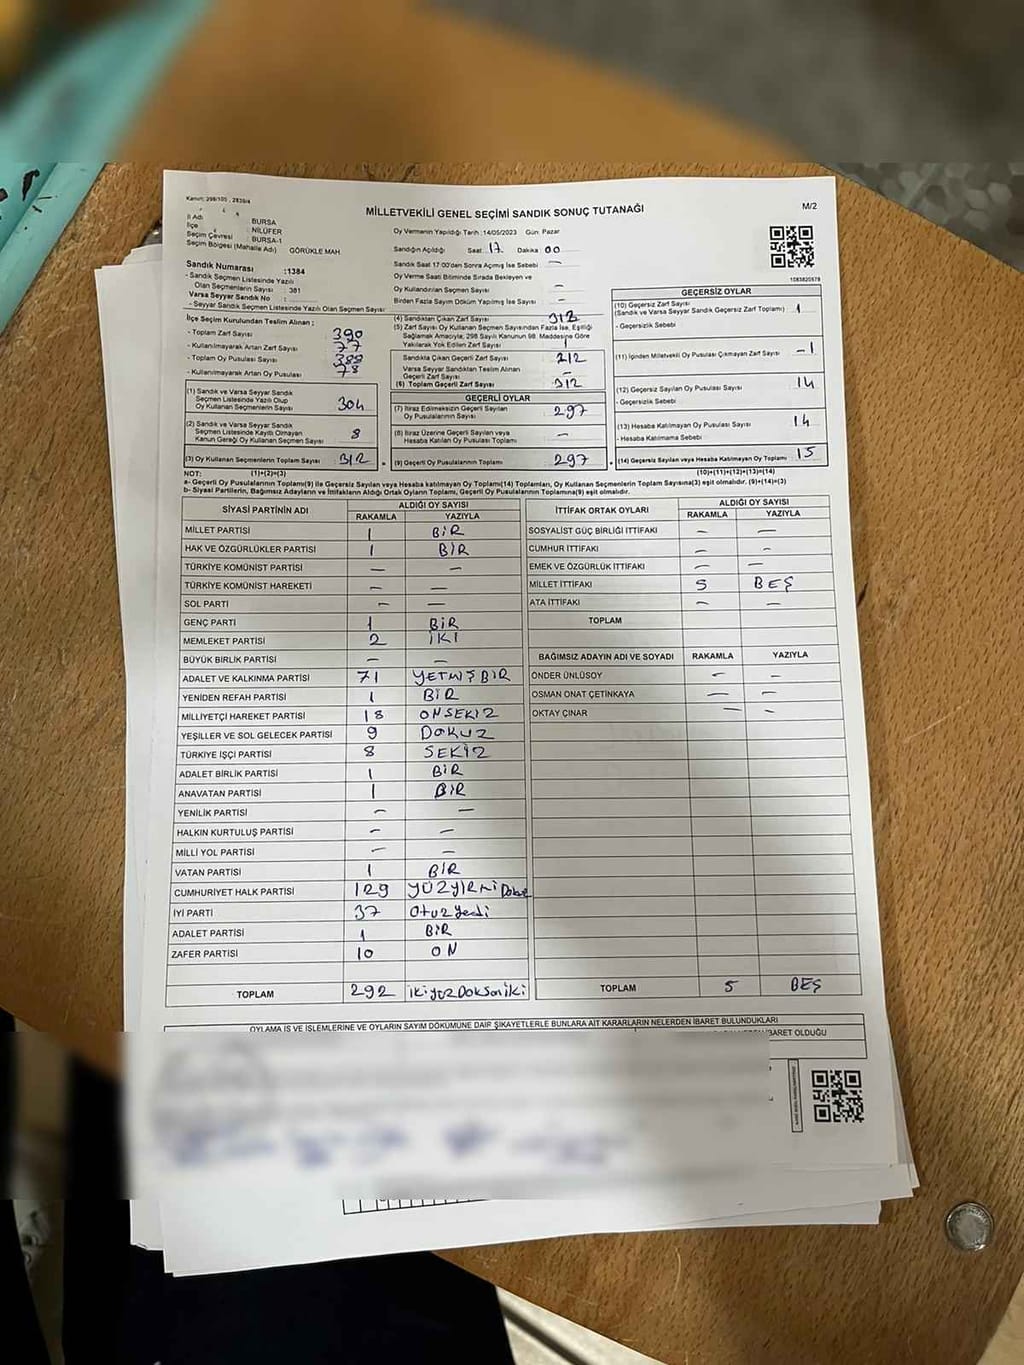 Kanun: 298/105 , 2839/4
MİLLETVEKİLİ GENEL SEÇİMİ SANDIK SONUÇ TUTANAĞI
M/2
İl Adı : BURSA
İlçe : NİLÜFER
Seçim Çevresi : BURSA-1
Seçim Bölgesi (Mahalle Adı) GÖRÜKLE MAH
Sandık Numarası :1384
- Sandık Seçmen Listesinde Yazılı
Olan Seçmenlerin Sayısı : 381
Varsa Seyyar Sandık No :
- Seyyar Sandık Seçmen Listesinde Yazılı Olan Seçmen Sayısı
Oy Vermenin Yapıldığı Tarih :14/05/2023 Gün: Pazar
Sandığın Açıldığı Saat 17 Dakika 00
Sandık Saat 17:00'den Sonra Açmış İse Sebebi —
Oy Verme Saati Bitiminde Sırada Bekleyen ve
Oy Kullandırılan Seçmen Sayısı —
Birden Fazla Sayım Döküm Yapılmış İse Sayısı —
1083820578
İlçe Seçim Kurulundan Teslim Alınan ;
- Toplam Zarf Sayısı 390
- Kullanılmayarak Artan Zarf Sayısı 77
- Toplam Oy Pusulası Sayısı
- Kullanılmayarak Artan Oy Pusulası 78
(1) Sandık ve Varsa Seyyar Sandık
Seçmen Listesinde Yazılı Olup
Oy Kullanan Seçmenlerin Sayısı 304
(2) Sandık ve Varsa Seyyar Sandık
Seçmen Listesinde Kayıtlı Olmayan
Kanun Gereği Oy Kullanan Seçmen Sayısı 8
(3) Oy Kullanan Seçmenlerin Toplam Sayısı 312
(4) Sandıktan Çıkan Zarf Sayısı 312
(5) Zarf Sayısı Oy Kullanan Seçmen Sayısından Fazla İse, Eşitliği
Sağlamak Amacıyla; 298 Sayılı Kanunun 98. Maddesine Göre
Yakılarak Yok Edilen Zarf Sayısı
Sandıkta Çıkan Geçerli Zarf Sayısı 212
Varsa Seyyar Sandıktan Teslim Alınan
Geçerli Zarf Sayısı —
(6) Toplam Geçerli Zarf Sayısı 312
GEÇERLİ OYLAR
(7) İtiraz Edilmeksizin Geçerli Sayılan
Oy Pusulalarının Sayısı 297
(8) İtiraz Üzerine Geçerli Sayılan veya
Hesaba Katılan Oy Pusulası Toplamı —
(9) Geçerli Oy Pusulalarının Toplamı 297
GEÇERSİZ OYLAR
(10) Geçersiz Zarf Sayısı
(Sandık ve Varsa Seyyar Sandık Geçersiz Zarf Toplamı) 1
- Geçersizlik Sebebi
(11) İçinden Milletvekili Oy Pusulası Çıkmayan Zarf Sayısı —1
(12) Geçersiz Sayılan Oy Pusulası Sayısı 14
- Geçersizlik Sebebi
(13) Hesaba Katılmayan Oy Pusulası Sayısı 14
- Hesaba Katılmama Sebebi
(14) Geçersiz Sayılan veya Hesaba Katılmayan Oy Toplamı 15
NOT: (1)+(2)=(3) (10)+(11)+(12)+(13)=(14)
a- Geçerli Oy Pusulalarının Toplamı(9) ile Geçersiz Sayılan veya Hesaba Katılmayan Oy Toplamı(14) Toplamları, Oy Kullanan Seçmenlerin Toplam Sayısına(3) eşit olmalıdır. (9)+(14)=(3)
b- Siyasi Partilerin, Bağımsız Adayların ve İttifakların Aldığı Ortak Oyların Toplamı, Geçerli Oy Pusulalarının Toplamına(9) eşit olmalıdır.
SİYASİ PARTİNİN ADI ALDIĞI OY SAYISI
RAKAMLA YAZIYLA
MİLLET PARTİSİ 1 BİR
HAK VE ÖZGÜRLÜKLER PARTİSİ 1 BİR
TÜRKİYE KOMÜNİST PARTİSİ — —
TÜRKİYE KOMÜNİST HAREKETİ — —
SOL PARTİ — —
GENÇ PARTİ 1 BİR
MEMLEKET PARTİSİ 2 İKİ
BÜYÜK BİRLİK PARTİSİ — —
ADALET VE KALKINMA PARTİSİ 71 YETMİŞBİR
YENİDEN REFAH PARTİSİ 1 BİR
MİLLİYETÇİ HAREKET PARTİSİ 18 ONSEKİZ
YEŞİLLER VE SOL GELECEK PARTİSİ 9 DOKUZ
TÜRKİYE İŞÇİ PARTİSİ 8 SEKİZ
ADALET BİRLİK PARTİSİ 1 BİR
ANAVATAN PARTİSİ 1 BİR
YENİLİK PARTİSİ — —
HALKIN KURTULUŞ PARTİSİ — —
MİLLİ YOL PARTİSİ — —
VATAN PARTİSİ 1 BİR
CUMHURİYET HALK PARTİSİ 129 YÜZYİRMİ
İYİ PARTİ 37 Otuzyedi
ADALET PARTİSİ 1 BİR
ZAFER PARTİSİ 10 ON
TOPLAM 292 ikiyüzDoksaniki
İTTİFAK ORTAK OYLARI ALDIĞI OY SAYISI
RAKAMLA YAZIYLA
SOSYALİST GÜÇ BİRLİĞİ İTTİFAKI — —
CUMHUR İTTİFAKI — —
EMEK VE ÖZGÜRLÜK İTTİFAKI — —
MİLLET İTTİFAKI 5 BEŞ
ATA İTTİFAKI — —
TOPLAM
BAĞIMSIZ ADAYIN ADI VE SOYADI RAKAMLA YAZIYLA
ÖNDER ÜNLÜSOY — —
OSMAN ONAT ÇETİNKAYA — —
OKTAY ÇINAR — —
TOPLAM 5 BEŞ
OYLAMA İŞ VE İŞLEMLERİNE VE OYLARIN SAYIM DÖKÜMÜNE DAİR ŞİKAYETLERLE BUNLARA AİT KARARLARIN NELERDEN İBARET BULUNDUKLARI
İBARET OLDUĞU